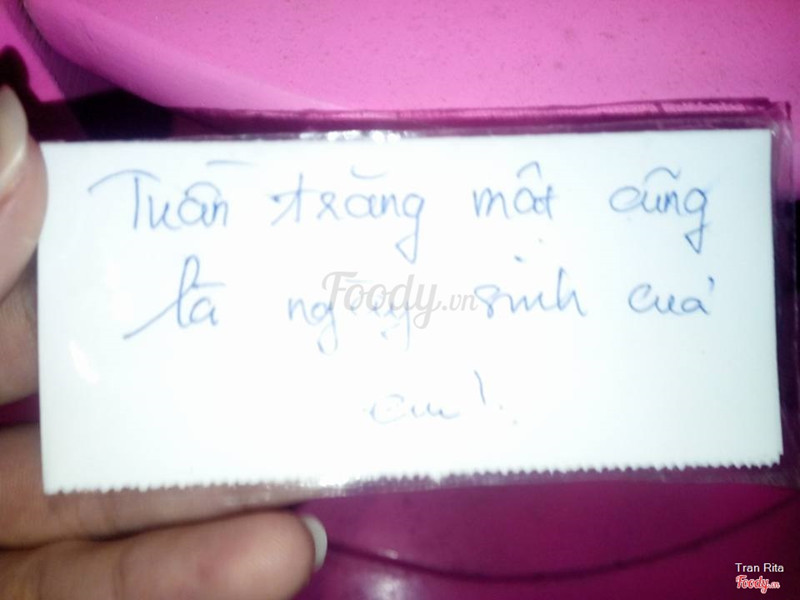 Tuần trăng mật cũng
là ngày sinh của
em!
Foody.vn
Tran Rita
Foody.vn